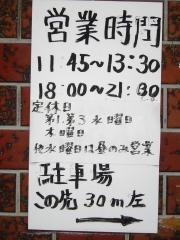 営業時間
11:45〜13:30
18:00〜21:30
定休日
第1.第3水曜日
木曜日
他水曜日は昼のみ営業
駐車場
この先30m左